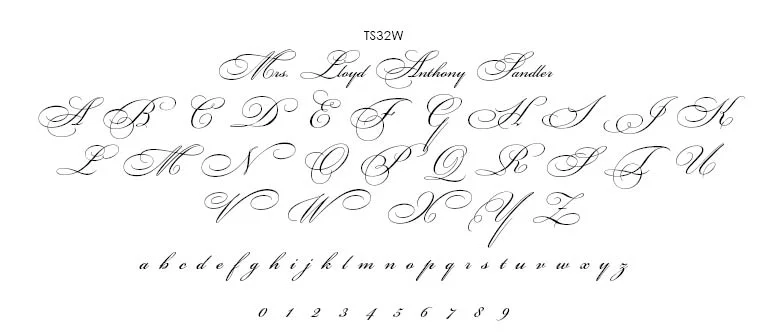 TS32W
Mrs. Lloyd Anthony Sandler
A B C D E F G H I J K
L M N O P Q R S T U
V W X Y Z
a b c d e f g h i j k l m n o p q r s t u v w x y z
0 1 2 3 4 5 6 7 8 9